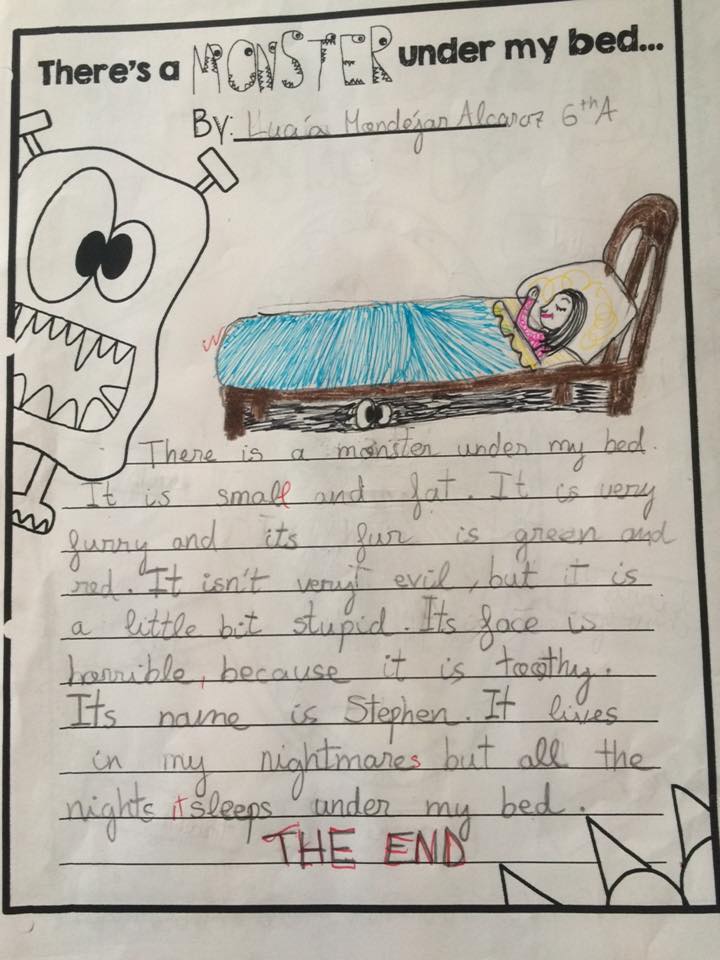 There's a MONSTER under my bed...
By: Lucía Mondéjar Alcaraz 6th A
There is a monster under my bed.
It is small and fat. It is very
furry and its fur is green and
red. It isn't very evil, but it is
a little bit stupid. Its face is
horrible, because it is toothy.
Its name is Stephen. It lives
in my nightmares but all the
nights it sleeps under my bed.
THE END